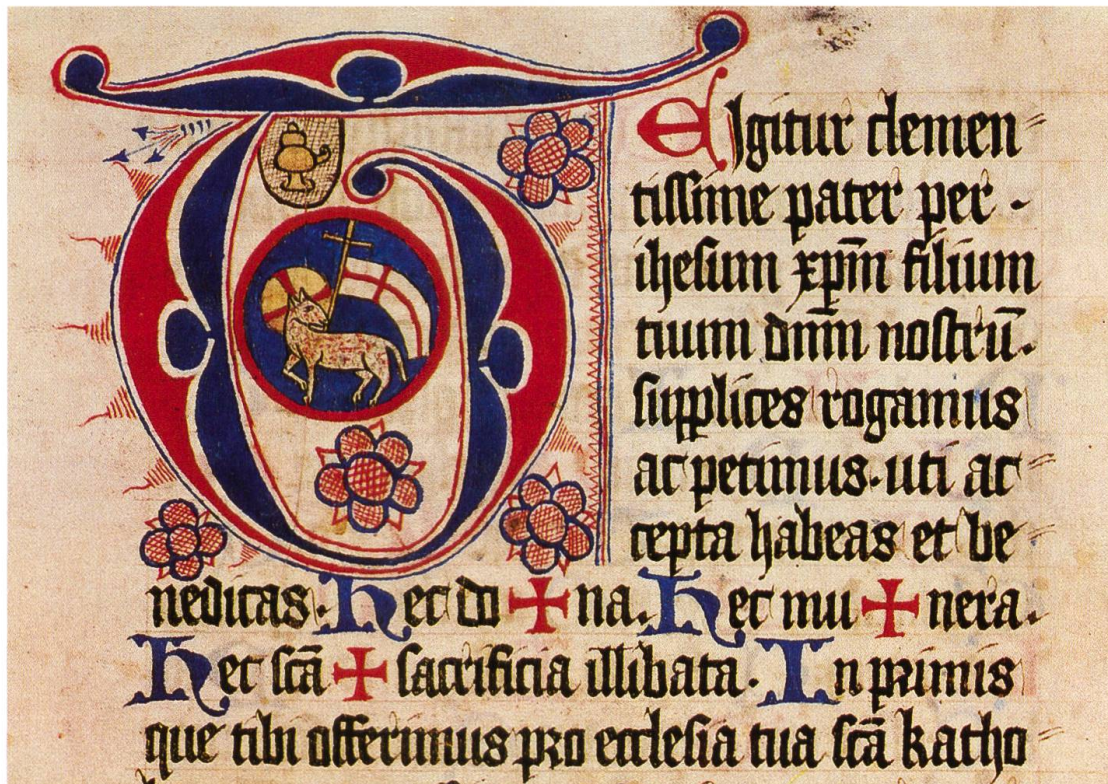 TE Igitur clemen⸗
tissime pater per ·
ihesum xp̄m filium
tuum dn̄m nostrū.
supplices rogamus
ac petimus. uti ac⸗
cepta habeas et be⸗
nedicas. Hec do ✠ na. Hec mu ✠ nera.
Hec sc̄a ✠ sacrificia illibata. In primis
que tibi offerimus pro ecclesia tua sc̄a katho⸗